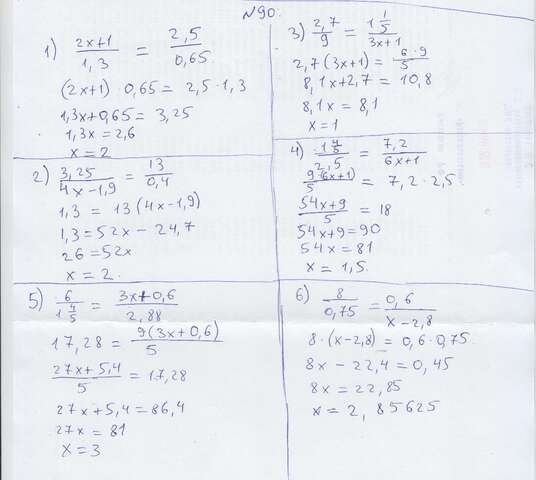 №90.
1) (2x+1)/1,3 = 2,5/0,65
(2x+1) · 0,65 = 2,5 · 1,3
1,3x+0,65 = 3,25
1,3x = 2,6
x = 2
2) 3,25/(4x-1,9) = 13/0,4
1,3 = 13(4x-1,9)
1,3 = 52x - 24,7
26 = 52x
x = 2.
3) 2,7/9 = 1 1/5/(3x+1)
2,7(3x+1) = 6·9/5
8,1x+2,7 = 10,8
8,1x = 8,1
x = 1
4) 1 4/5/2,5 = 7,2/(6x+1)
9(6x+1)/5 = 7,2 · 2,5
(54x+9)/5 = 18
54x+9 = 90
54x = 81
x = 1,5.
5) 6/1 4/5 = (3x+0,6)/2,88
17,28 = 9(3x+0,6)/5
(27x+5,4)/5 = 17,28
27x+5,4 = 86,4
27x = 81
x = 3
6) 8/0,75 = 0,6/(x-2,8)
8·(x-2,8) = 0,6·0,75.
8x - 22,4 = 0,45
8x = 22,85
x = 2,85625